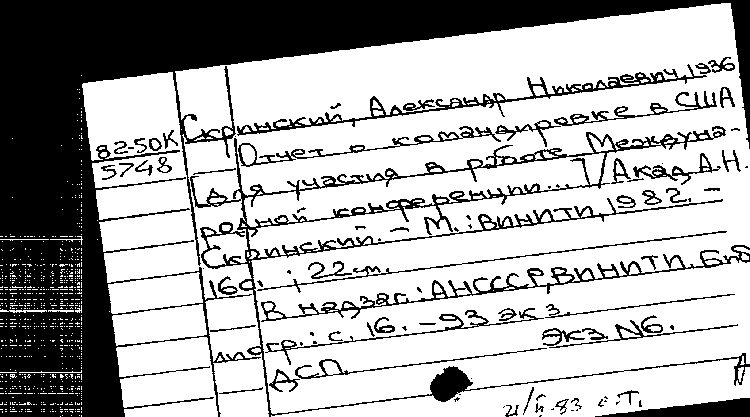 82-50К
5748
Скринский, Александр Николаевич, 1936
Отчет о командировке в США
[для участия в работе Междуна-
родной конференции... ]/Акад. А.Н.
Скринский. - М.: ВИНИТИ, 1982. -
16с. ; 22см.
В надзаг.: АНСССР, ВИНИТИ. Биб
лиогр.: с. 16. - 93 экз.
ДСП. Экз N6.